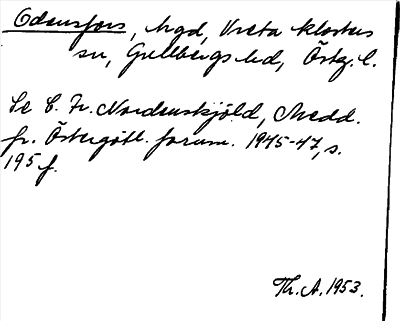 Odensfors, hrgd, Vreta klosters
sn, Gullbergs hd, Östg. l.
Se C. Fr. Nordenskjöld, Medd.
fr. Östergötl. fornm. 1945-47, s.
195 f.
Th. A. 1953.